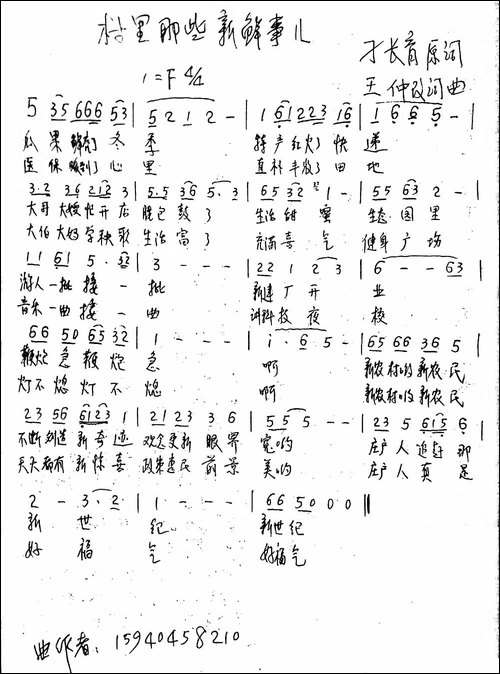 村里那些新鲜事儿
才长育原词
1=F 4/4
王仲改词曲
5 35 666 53 | 5 2 1 2 - | 1 61 223 16 | 1 6 6 5 - |
瓜果鲜了冬季 特产红火了快递
医保暖到了心里 直补丰收了田地
3·2 36 212 3 | 5·5 36 5·3 | 65 32 1 - | 55 63 2 - |
大哥大嫂忙开店 腰包鼓了 生活甜蜜 生态园里
大伯大妈学秧歌 生活富了 充满喜气 健身广场
11 61 5 · 32 | 3 - - - | 22 1 2 3 | 6 - - 63 |
游人一批接一批 新建厂开业
音乐一曲接一曲 讲科技夜校
66 50 65 32 | 1 - - - | i · 6 5 - | 65 66 36 5 |
鞭炮急鞭炮急 啊 新农村的新农民
灯不熄灯不熄 啊 新农村的新农民
23 56 6123 1 | 21 23 3 6 | 5 5 5 - - | 23 5 615 6 |
不断创造新奇迹 观念更新眼界宽哟 庄户人追赶那
天天都有新惊喜 政策惠民前景美哟 庄户人真是
2 - 3·2 | 1 - - - | 66 5 0 0 0 ‖
新世纪 新世纪
好福气 好福气
曲作者：15940458210